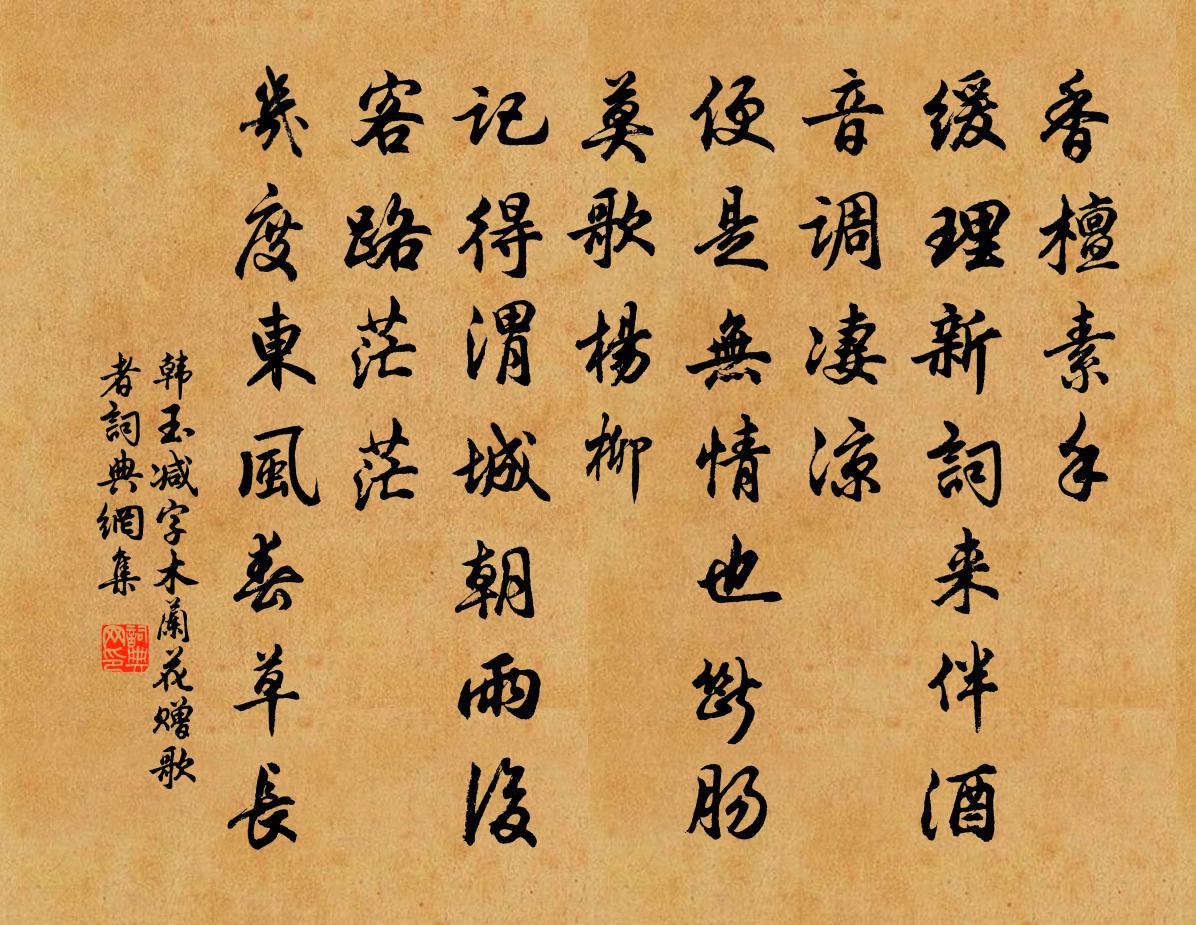 香檀素手
緩理新詞来伴酒
音調凄涼
便是無情也斷腸
莫歌楊柳
記得渭城朝雨後
客路茫茫
幾度東風春草長
韩玉减字木蘭花赠歌
者詞典網集
詞典网印